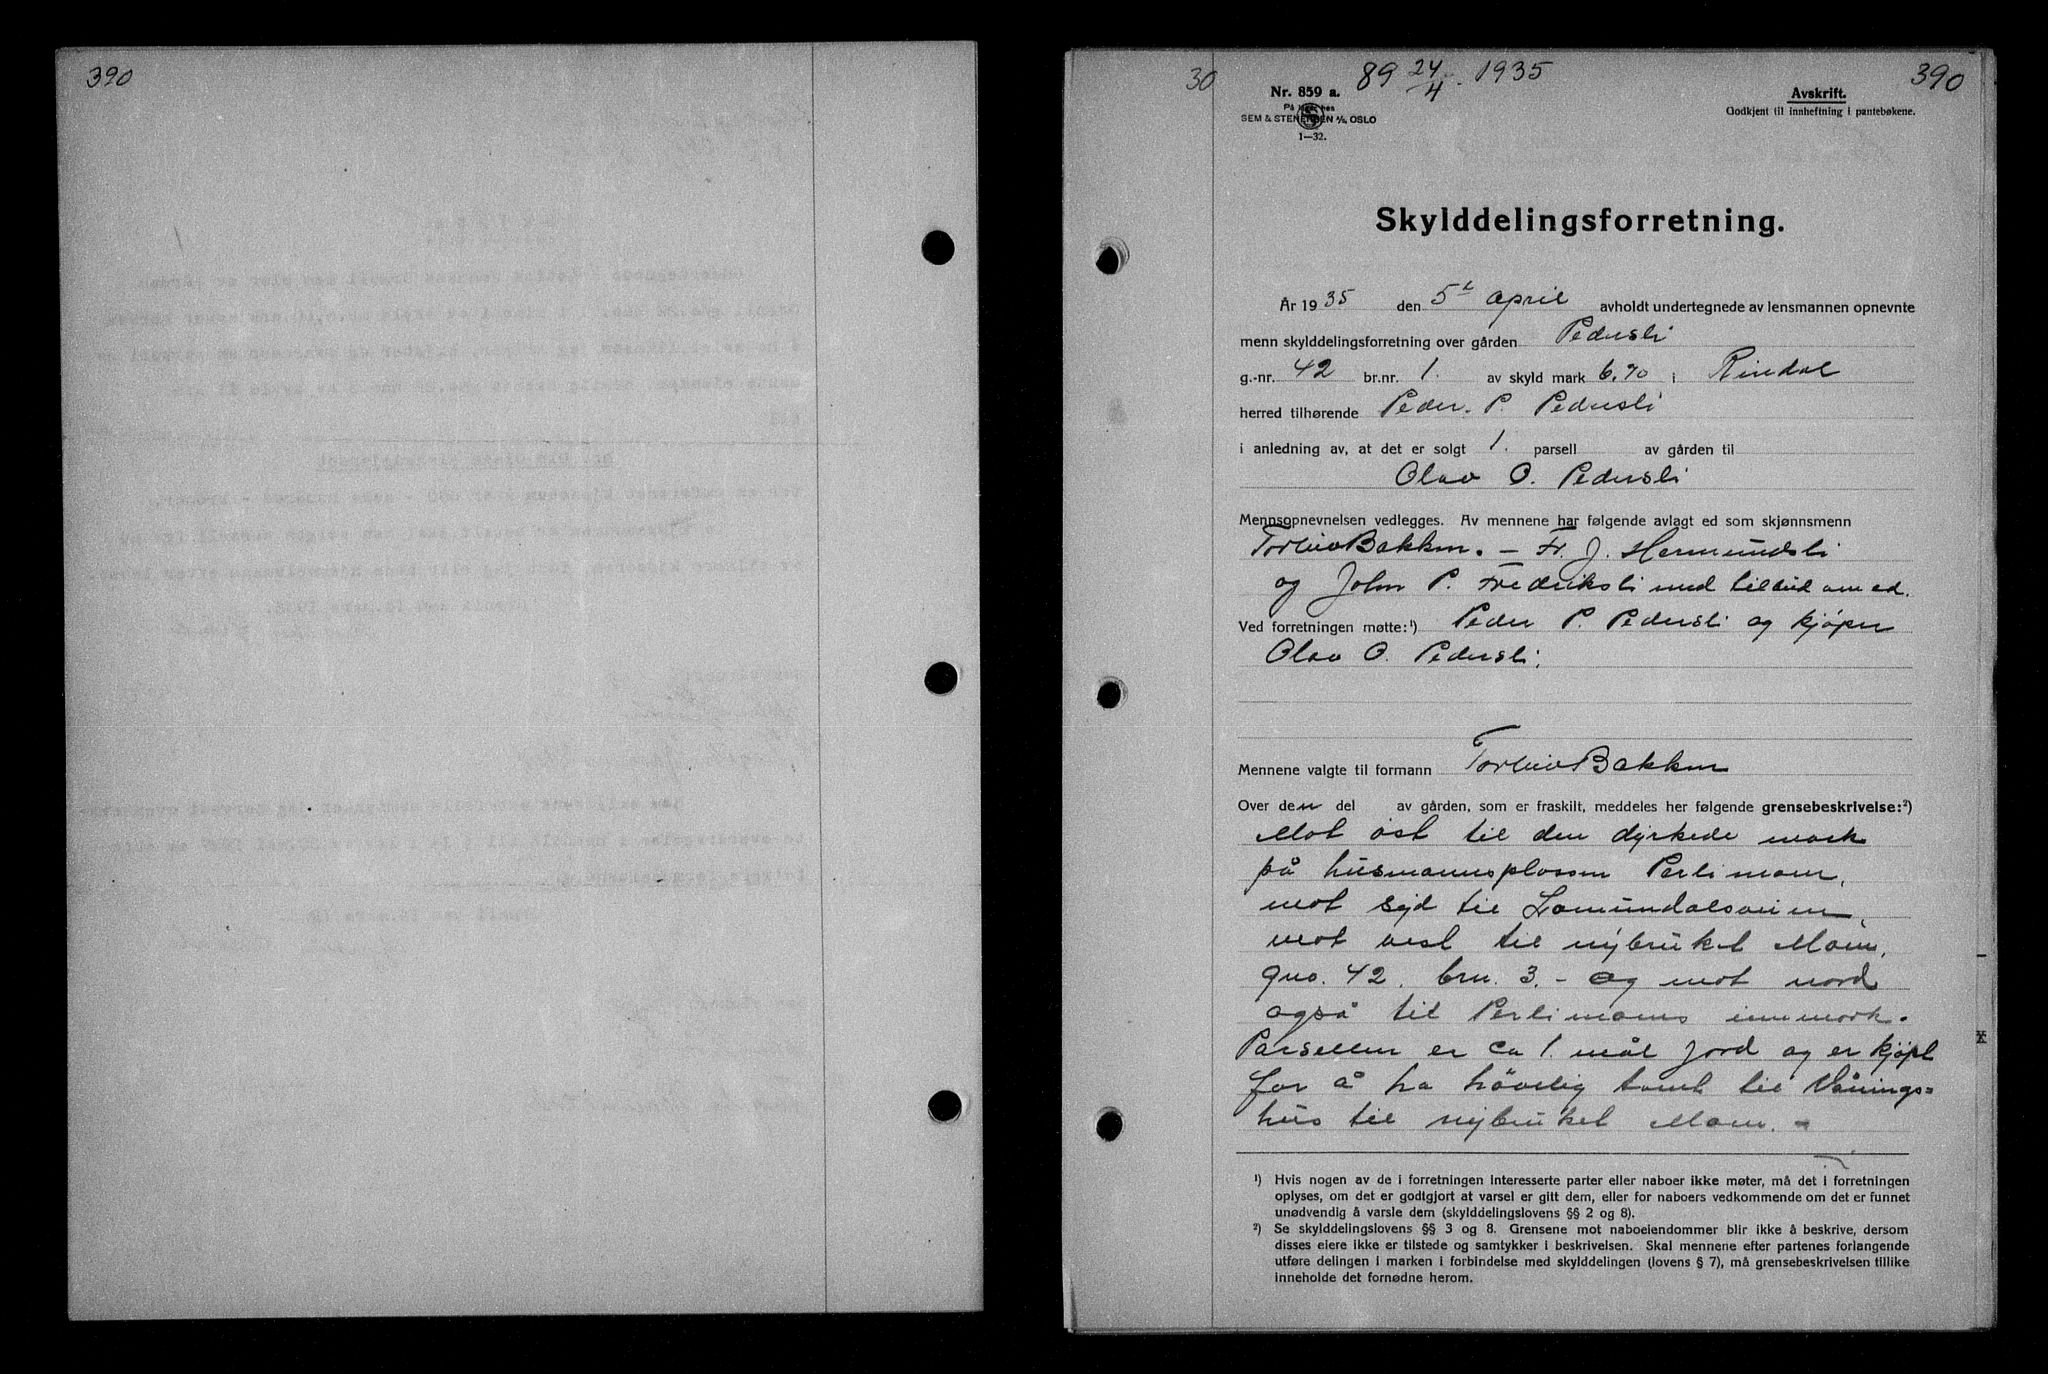 390
30
89 24/4 1935
390
Nr. 859 a.
På lager hos
SEM & STENERSEN A/S, OSLO
1—32.
Avskrift.
Godkjent til innheftning i pantebøkene.
Skylddelingsforretning.
År 1935 den 5t april avholdt undertegnede av lensmannen opnevnte
menn skylddelingsforretning over gården Pedersli
g.-nr. 42 br.nr. 1. av skyld mark 6.70 i Rindal
herred tilhørende Peder P. Pedersli
i anledning av, at det er solgt 1. parsell av gården til
Olav O. Pedersli
Mennsopnevnelsen vedlegges. Av mennene har følgende avlagt ed som skjønnsmenn
Torleiv Bakken. – Fr. J. Hermundsli
og John P. Fredriksli med tilbud om ed.
Ved forretningen møtte:¹) Peder P. Pedersli og kjøper
Olav O. Pedersli.
Mennene valgte til formann Torleiv Bakken
Over den del av gården, som er fraskilt, meddeles her følgende grensebeskrivelse:²)
Mot øst til den dyrkede mark
på husmannsplassen Perlimoen,
mot syd til Lomundalsveien,
mot vest til nybruket Moen,
gno. 42. brn. 3. – og mot nord
også til Perlimoens innmark.
Parsellen er ca 1. mål jord og er kjøpt
for å ha høvelig tomt til Vånings=
hus til nybruket Moen. –
¹) Hvis nogen av de i forretningen interesserte parter eller naboer ikke møter, må det i forretningen
oplyses, om det er godtgjort at varsel er gitt dem, eller for naboers vedkommende om det er funnet
unødvendig å varsle dem (skylddelingslovens §§ 2 og 8).
²) Se skylddelingslovens §§ 3 og 8. Grensene mot naboeiendommer blir ikke å beskrive, dersom
disses eiere ikke er tilstede og samtykker i beskrivelsen. Skal mennene efter partenes forlangende
utføre delingen i marken i forbindelse med skylddelingen (lovens § 7), må grensebeskrivelsen tillike
inneholde det fornødne herom.